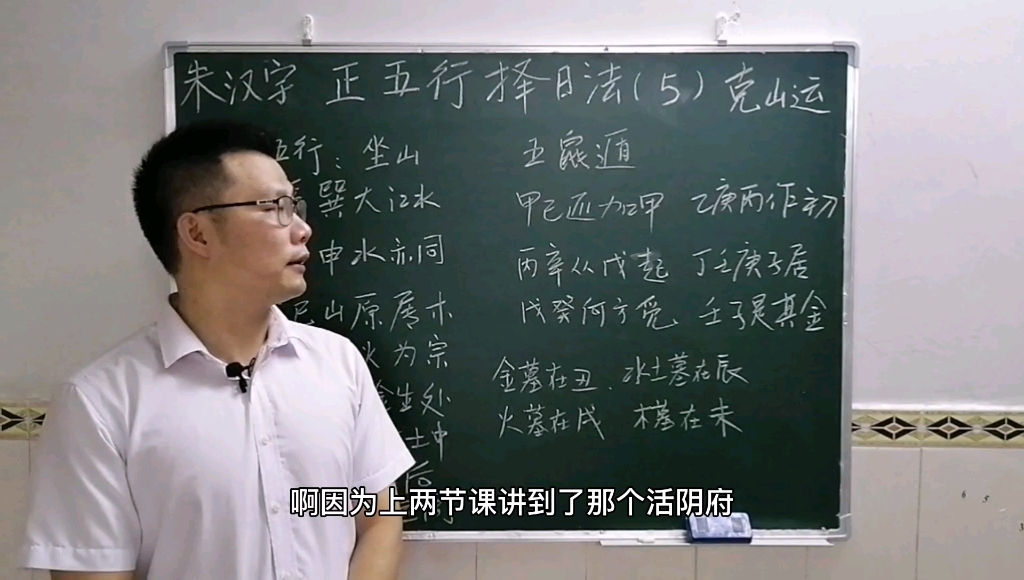 朱汉字 正五行择日法(5) 克山运
五行:坐山
巽大江水
申水亦同
山原属木
水为宗
金生处
土中
后
五鼠遁
甲己还加甲 乙庚丙作初
丙辛从戊起 丁壬庚子居
戊癸何方觅 壬子是其金
金墓在丑、水土墓在辰
火墓在戌 木墓在未
啊因为上两节课讲到了那个活阴府